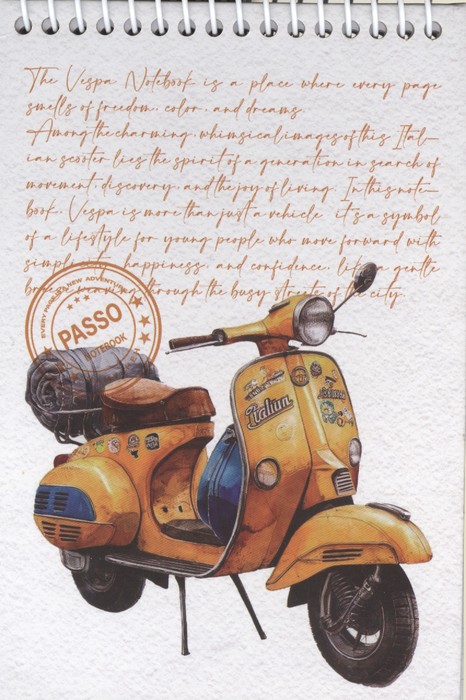 The Vespa Notebook is a place where every page
smells of freedom, color, and dreams.
Among the charming, whimsical images of this Ital-
ian scooter lies the spirit of a generation in search of
movement, discovery, and the joy of living. In this note-
book, Vespa is more than just a vehicle it's a symbol
of a lifestyle for young people who move forward with
happiness, and confidence, like a gentle
through the busy streets of the city.
EVERY PAGE IS A NEW ADVENTURE
PASSO
NOTEBOOK
Italian